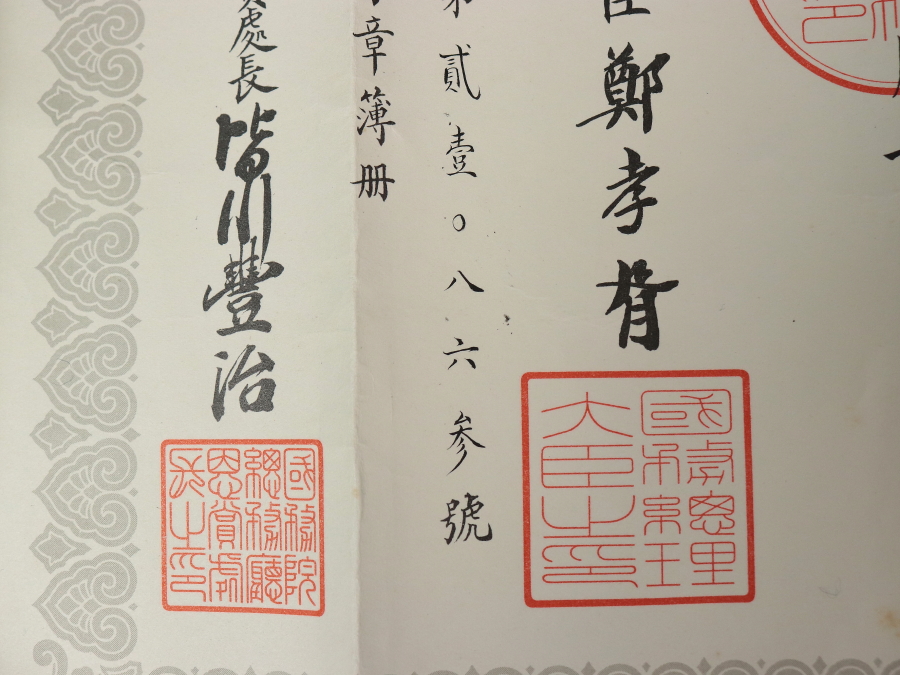 臣鄭孝胥
國務總理
大臣之印
第貳壹〇八六参號
章簿册
處長皆川豐治
國務院
總務廳
恩賞處
長之印